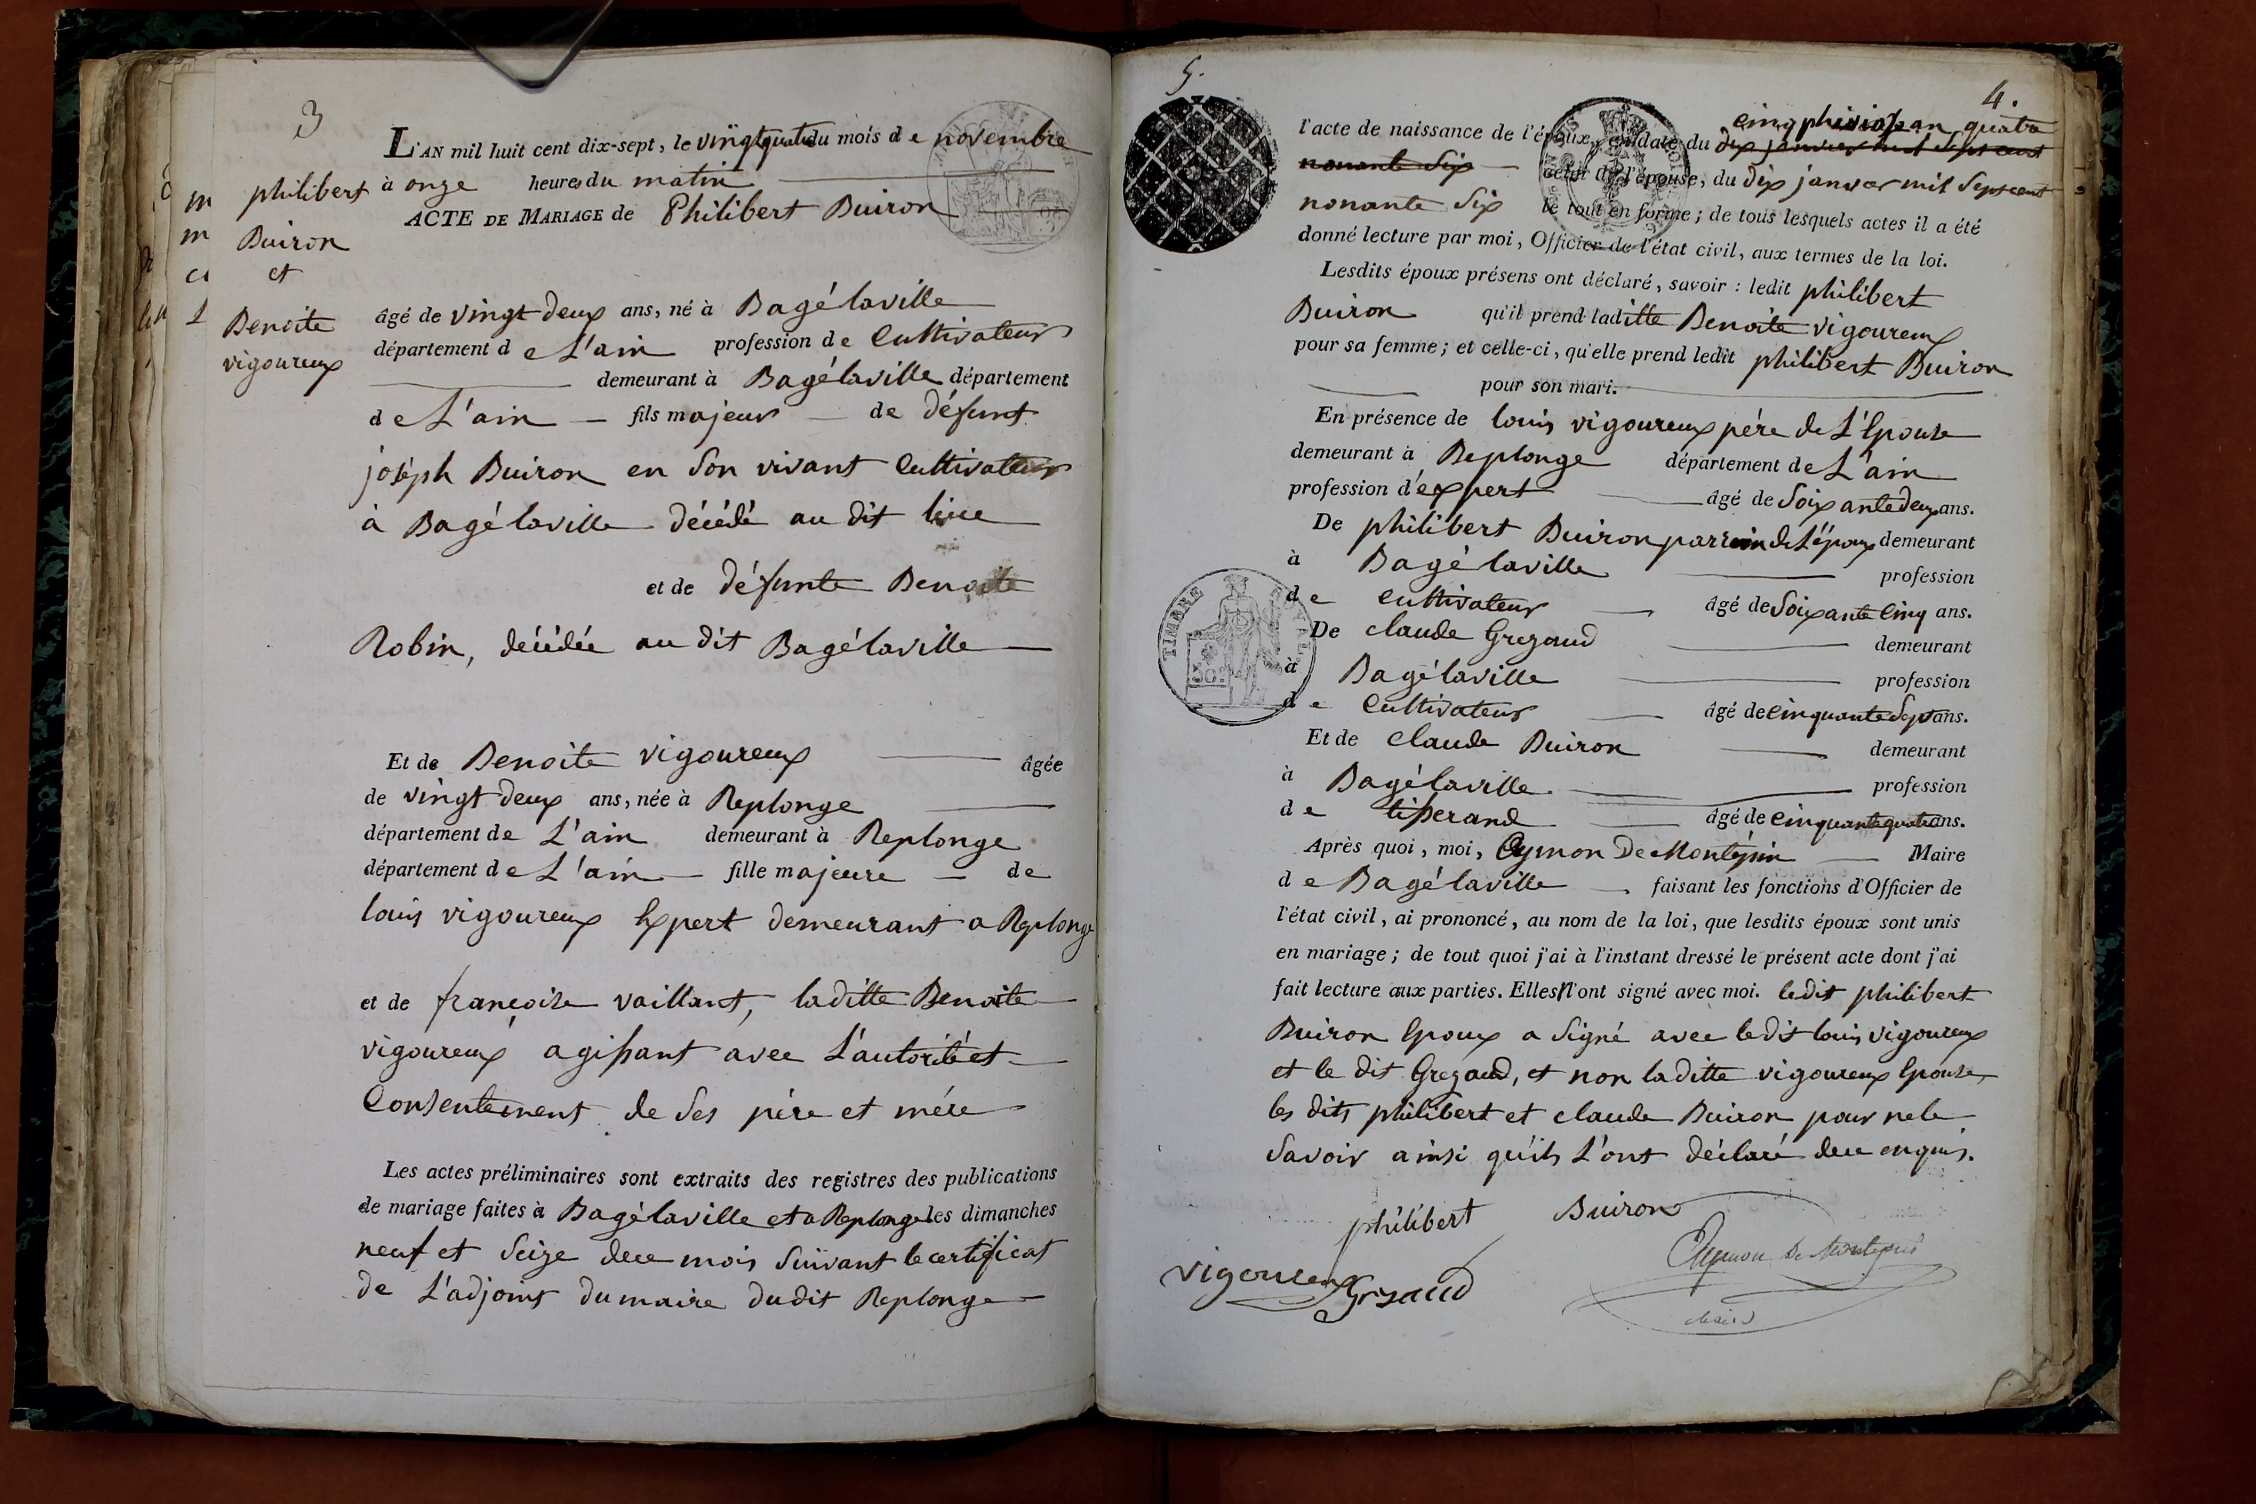 3
L'AN mil huit cent dix-sept, le vingt quatre du mois de novembre
à onze heures du matin
ACTE DE MARIAGE de Philibert Buiron
philibert
Buiron
et
Benoite
vigoureux
âgé de vingt deux ans, né à Bagé laville
département de L'ain profession de Cultivateur
demeurant à Bagé laville département
de L'ain fils majeur de défunt
joséph Buiron en Son vivant Cultivateur
à Bagé laville décédé au dit lieu
et de défunte Benoite
Robin, décédée au dit Bagé laville
Et de Benoite vigoureux âgée
de vingt deux ans, née à Replonge
département de L'ain demeurant à Replonge
département de L'ain fille majeure de
louis vigoureux Expert demeurant a Replonge
et de françoise vaillant, laditte Benoite
vigoureux agissant avec L'autorité et
Consentement de Ses père et mére
Les actes préliminaires sont extraits des registres des publications
de mariage faites à Bagé laville et a Replonge les dimanches
neuf et Seize de ce mois Suivant le certificat
de L'adjoint du maire du dit Replonge
5.
4.
cinq pluviose an quatre
l'acte de naissance de l'époux, en date du dix janvier mil sept cent
nonante Six celui de l'épouse, du dix janvier mil Sept cent
nonante Six le tout en forme; de tous lesquels actes il a été
donné lecture par moi, Officier de l'état civil, aux termes de la loi.
Lesdits époux présens ont déclaré, savoir: ledit philibert
Buiron qu'il prend laditte Benoite vigoureux
pour sa femme; et celle-ci, qu'elle prend ledit philibert Buiron
pour son mari.
En présence de louis vigoureux pére de L'Epouse
demeurant à Replonge département de L'ain
profession d'expert âgé de Soixante deux ans.
De philibert Buiron parrein de L'époux demeurant
à Bagé laville profession
de cultivateur âgé de Soixante Cinq ans.
TIMBRE ROYAL
50c
De claude Grezaud demeurant
à Bagé laville profession
de Cultivateur âgé de Cinquante Sept ans.
Et de Claude Buiron demeurant
à Bagé laville profession
de tisserand âgé de Cinquante quatre ans.
Après quoi, moi, Aymon De Montépin Maire
de Bagé laville faisant les fonctions d'Officier de
l'état civil, ai prononcé, au nom de la loi, que lesdits époux sont unis
en mariage; de tout quoi j'ai à l'instant dressé le présent acte dont j'ai
fait lecture aux parties. Elles n'ont signé avec moi. ledit philibert
Buiron Epoux a Signé avec le dit louis vigoureux
et le dit Grezaud, et non la ditte vigoureux Epouse,
les dits philibert et claude Buiron pour ne le
Savoir ainsi qu'ils L'ont déclaré de ce enquis.
philibert Buiron
Aymon De Montépin
vigoureux Grezaud
Maire